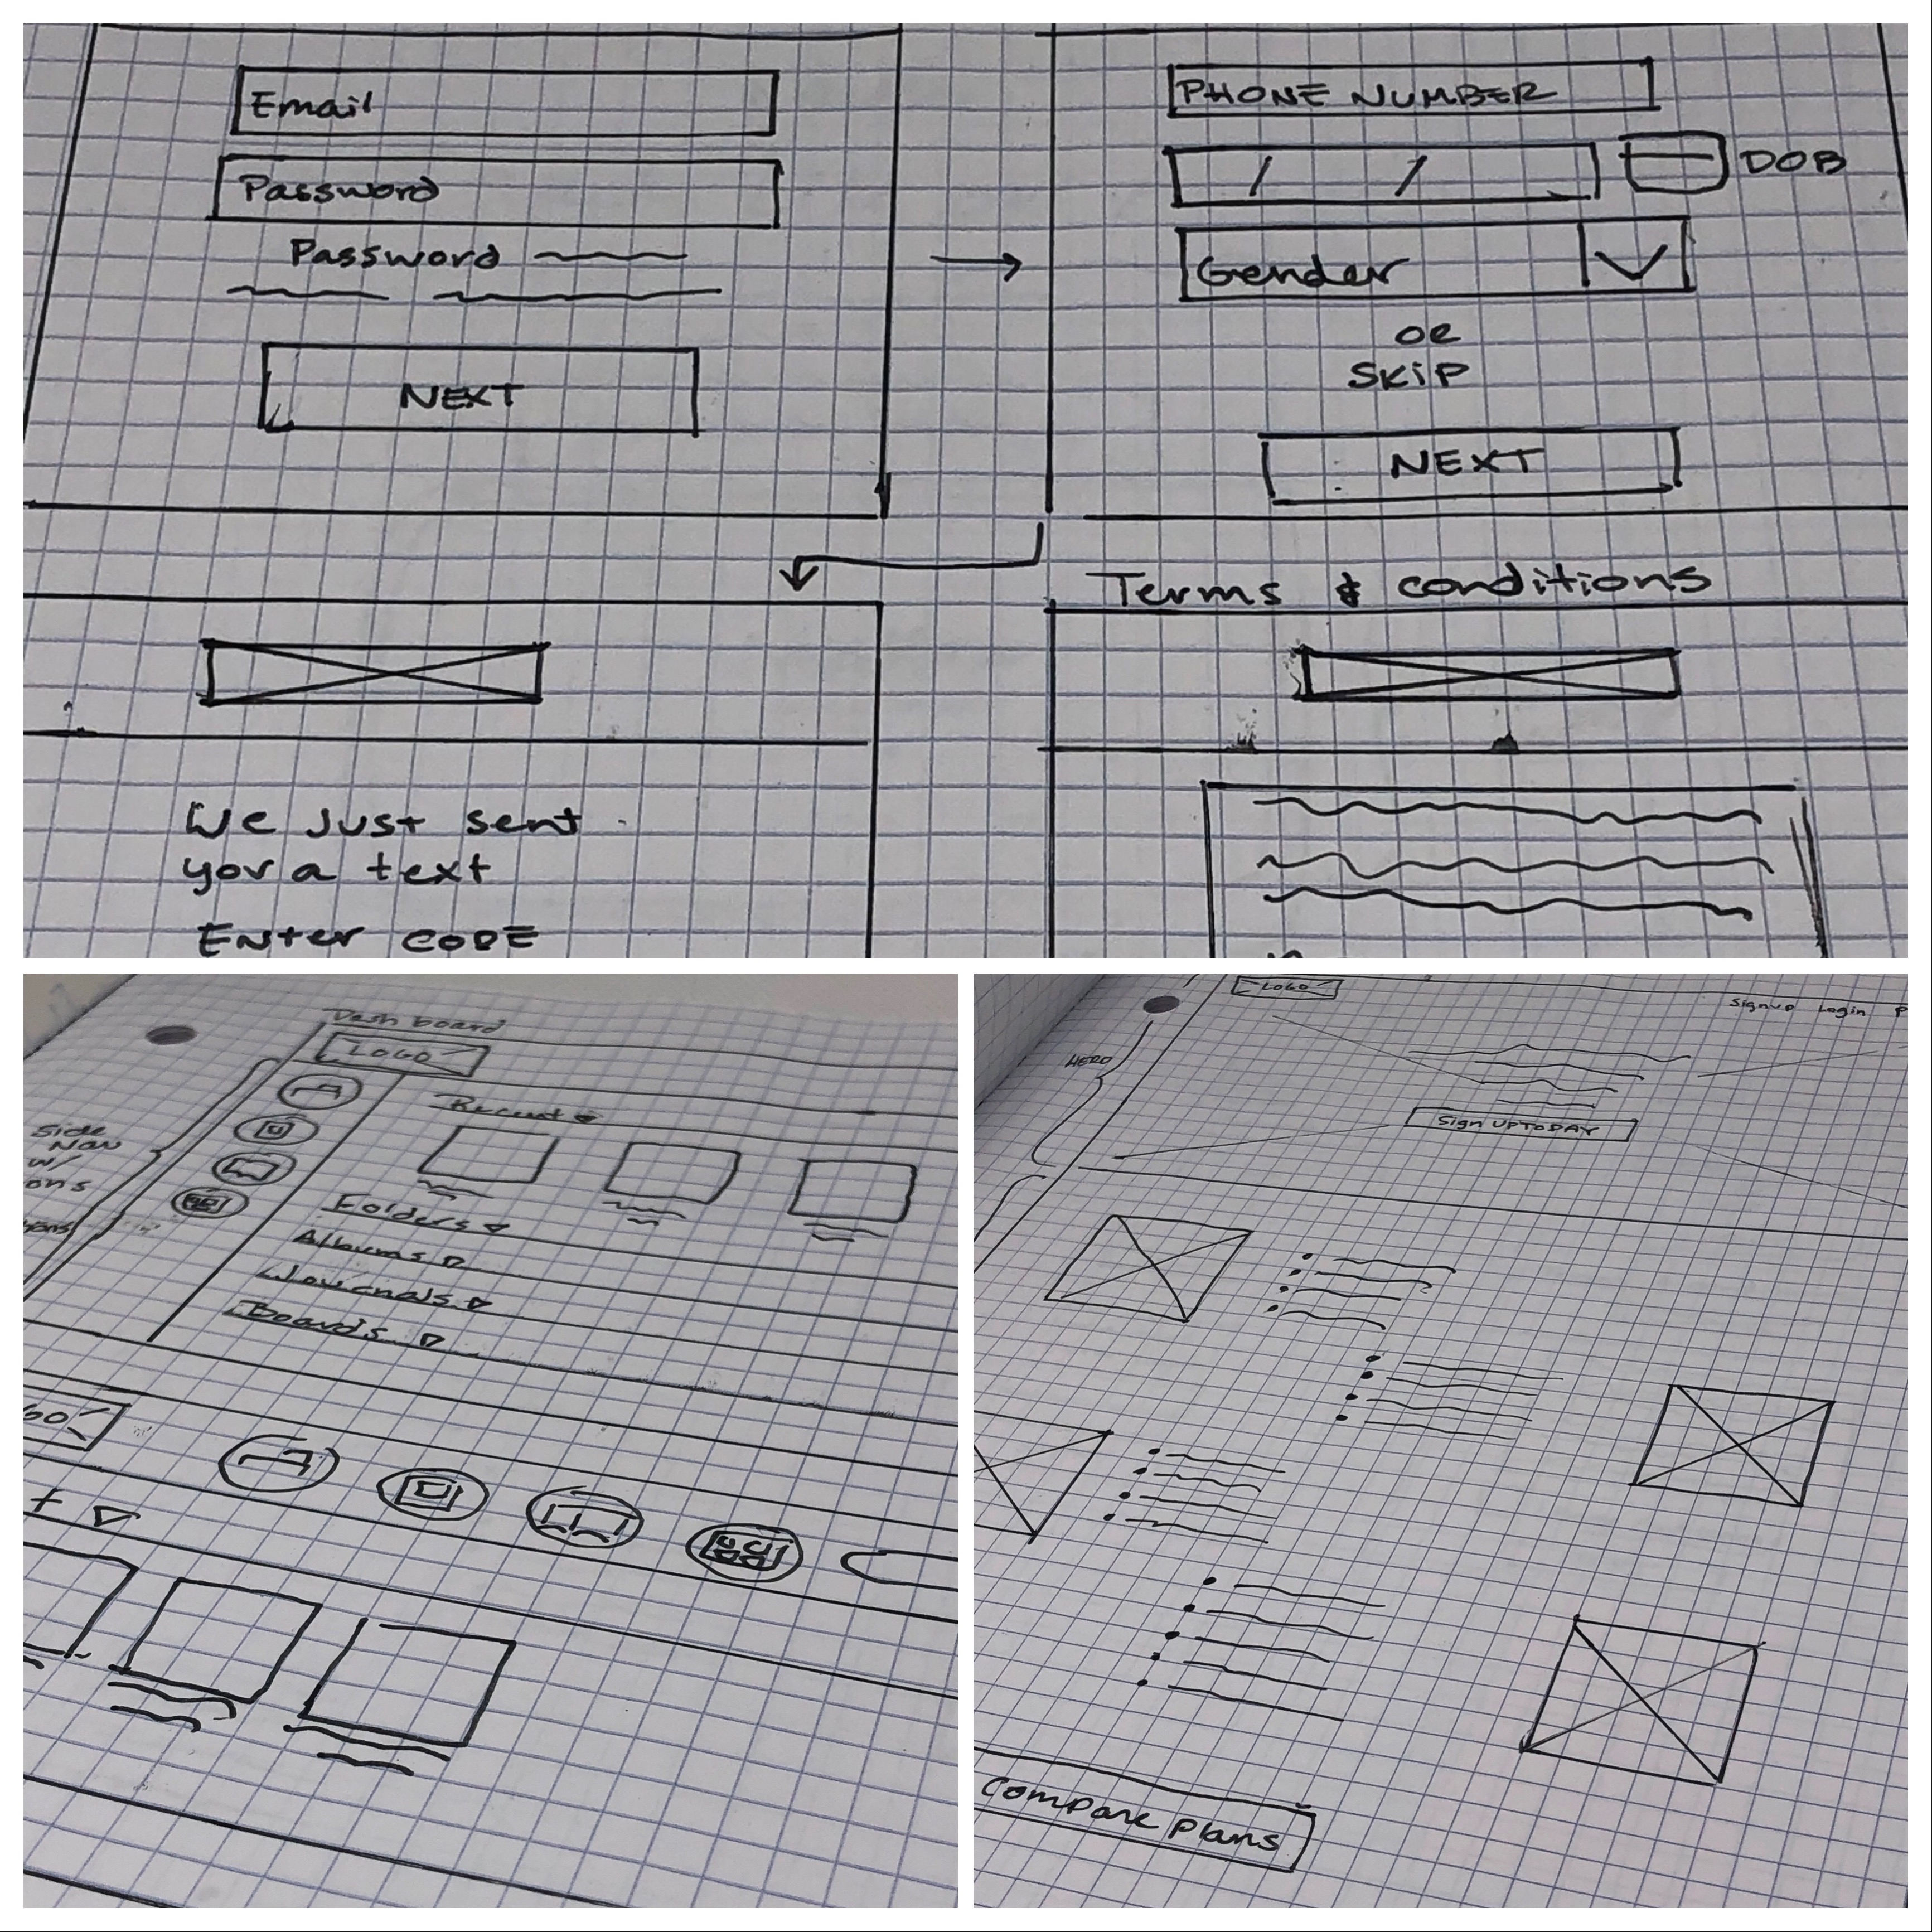 Email
Password
Password
NEXT
PHONE NUMBER
/ / DOB
Gender
OR
SKIP
NEXT
We just sent
you a text
Enter CODE
Terms & conditions
Dashboard
LOGO
Side
Nav
w/
Recent
Folders
Albums
Journals
Boards
LOGO
Signup Login P
HERO
Sign UP TODAY
Compare plans